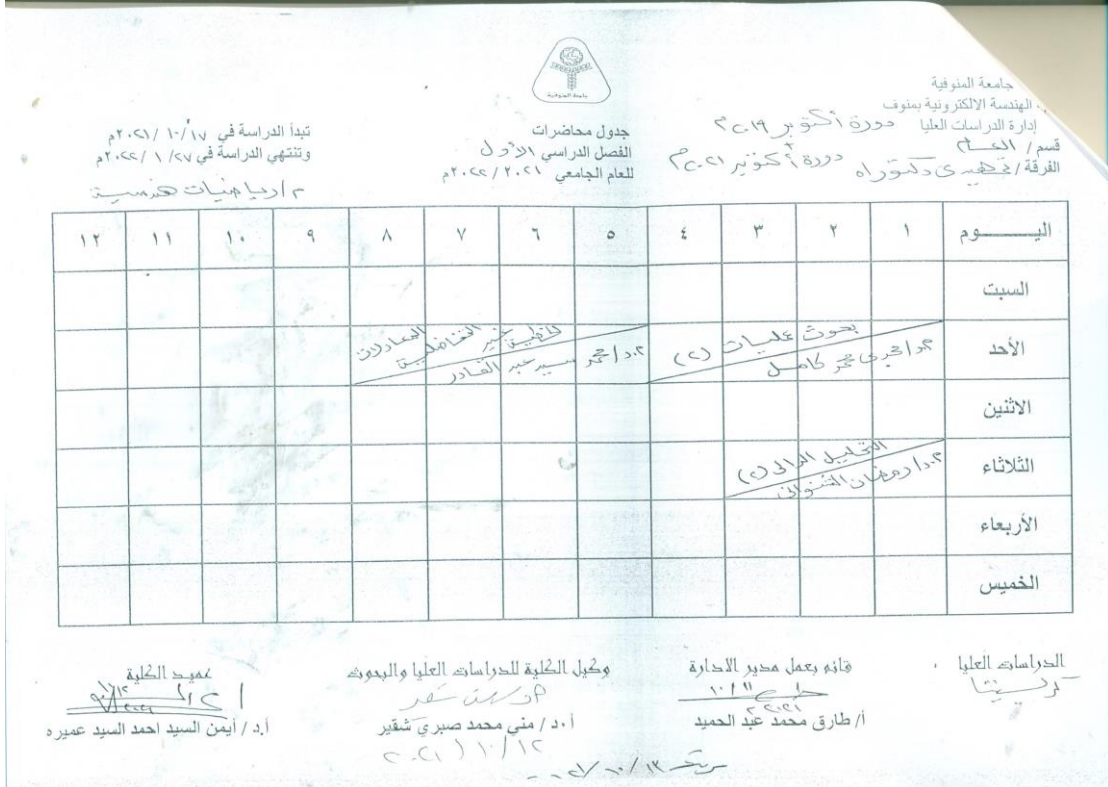 جامعة المنوفية
جامعة المنوفية
الهندسة الالكترونية بمنوف
إدارة الدراسات العليا دورة أكتوبر ٢٠١٩م
قسم /
الفرقة / تمهيدى دكتوراه دورة أكتوبر ٢٠٢١م
جدول محاضرات
الفصل الدراسي الأول
للعام الجامعي ٢٠٢١ / ٢٠٢٢م
تبدأ الدراسة في ١٧ / ١٠ / ٢٠٢١م
وتنتهي الدراسة في ٢٧ / ١ / ٢٠٢٢م
رياضيات هندسية
اليـــــوم ١ ٢ ٣ ٤ ٥ ٦ ٧ ٨ ٩ ١٠ ١١ ١٢
السبت
الأحد
بحوث عمليات (٢)
د/ مجدى محمد كامل
المعادلات التفاضلية غير الخطية
د/ محمد سيد عبد القادر
الاثنين
الثلاثاء
التحليل الدالى (٢)
د/ رمضان الشنوانى
الأربعاء
الخميس
الدراسات العليا
قائم بعمل مدير الادارة
١١ / ١٠
٢٠٢١
أ/ طارق محمد عبد الحميد
وكيل الكلية للدراسات العليا والبحوث
أ.د / مني محمد صبري شقير
١٢ / ١٠ / ٢٠٢١
عميد الكلية
أ.د / أيمن السيد احمد السيد عميره